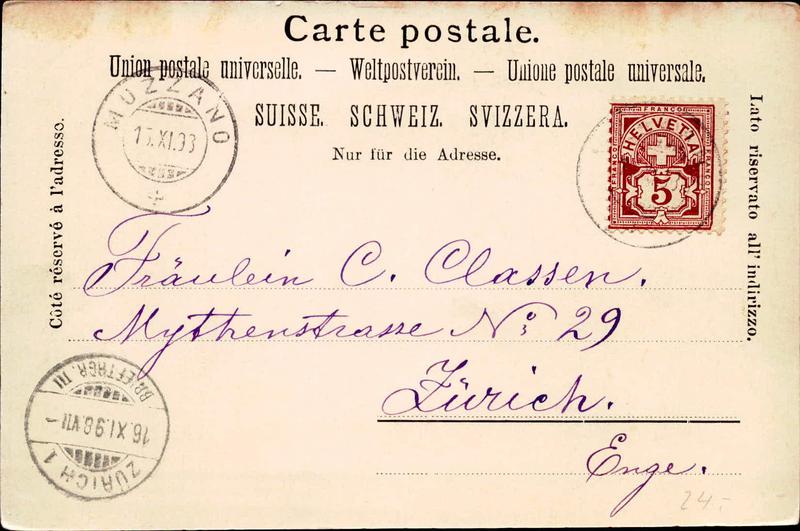 Carte postale.
Union postale universelle. — Weltpostverein. — Unione postale universale.
SUISSE. SCHWEIZ. SVIZZERA.
Nur für die Adresse.
Côté réservé à l'adresse.
Lato riservato all' indirizzo.
MUZZANO
15.XI.93
FRANCO
HELVETIA
FRANCO
FRANCO
5
Fräulein C. Classen.
Mythenstrasse No. 29
Zürich.
Enge.
BRIEFTRGR. III
16.XI.98.VII-
ZÜRICH 1
24.-